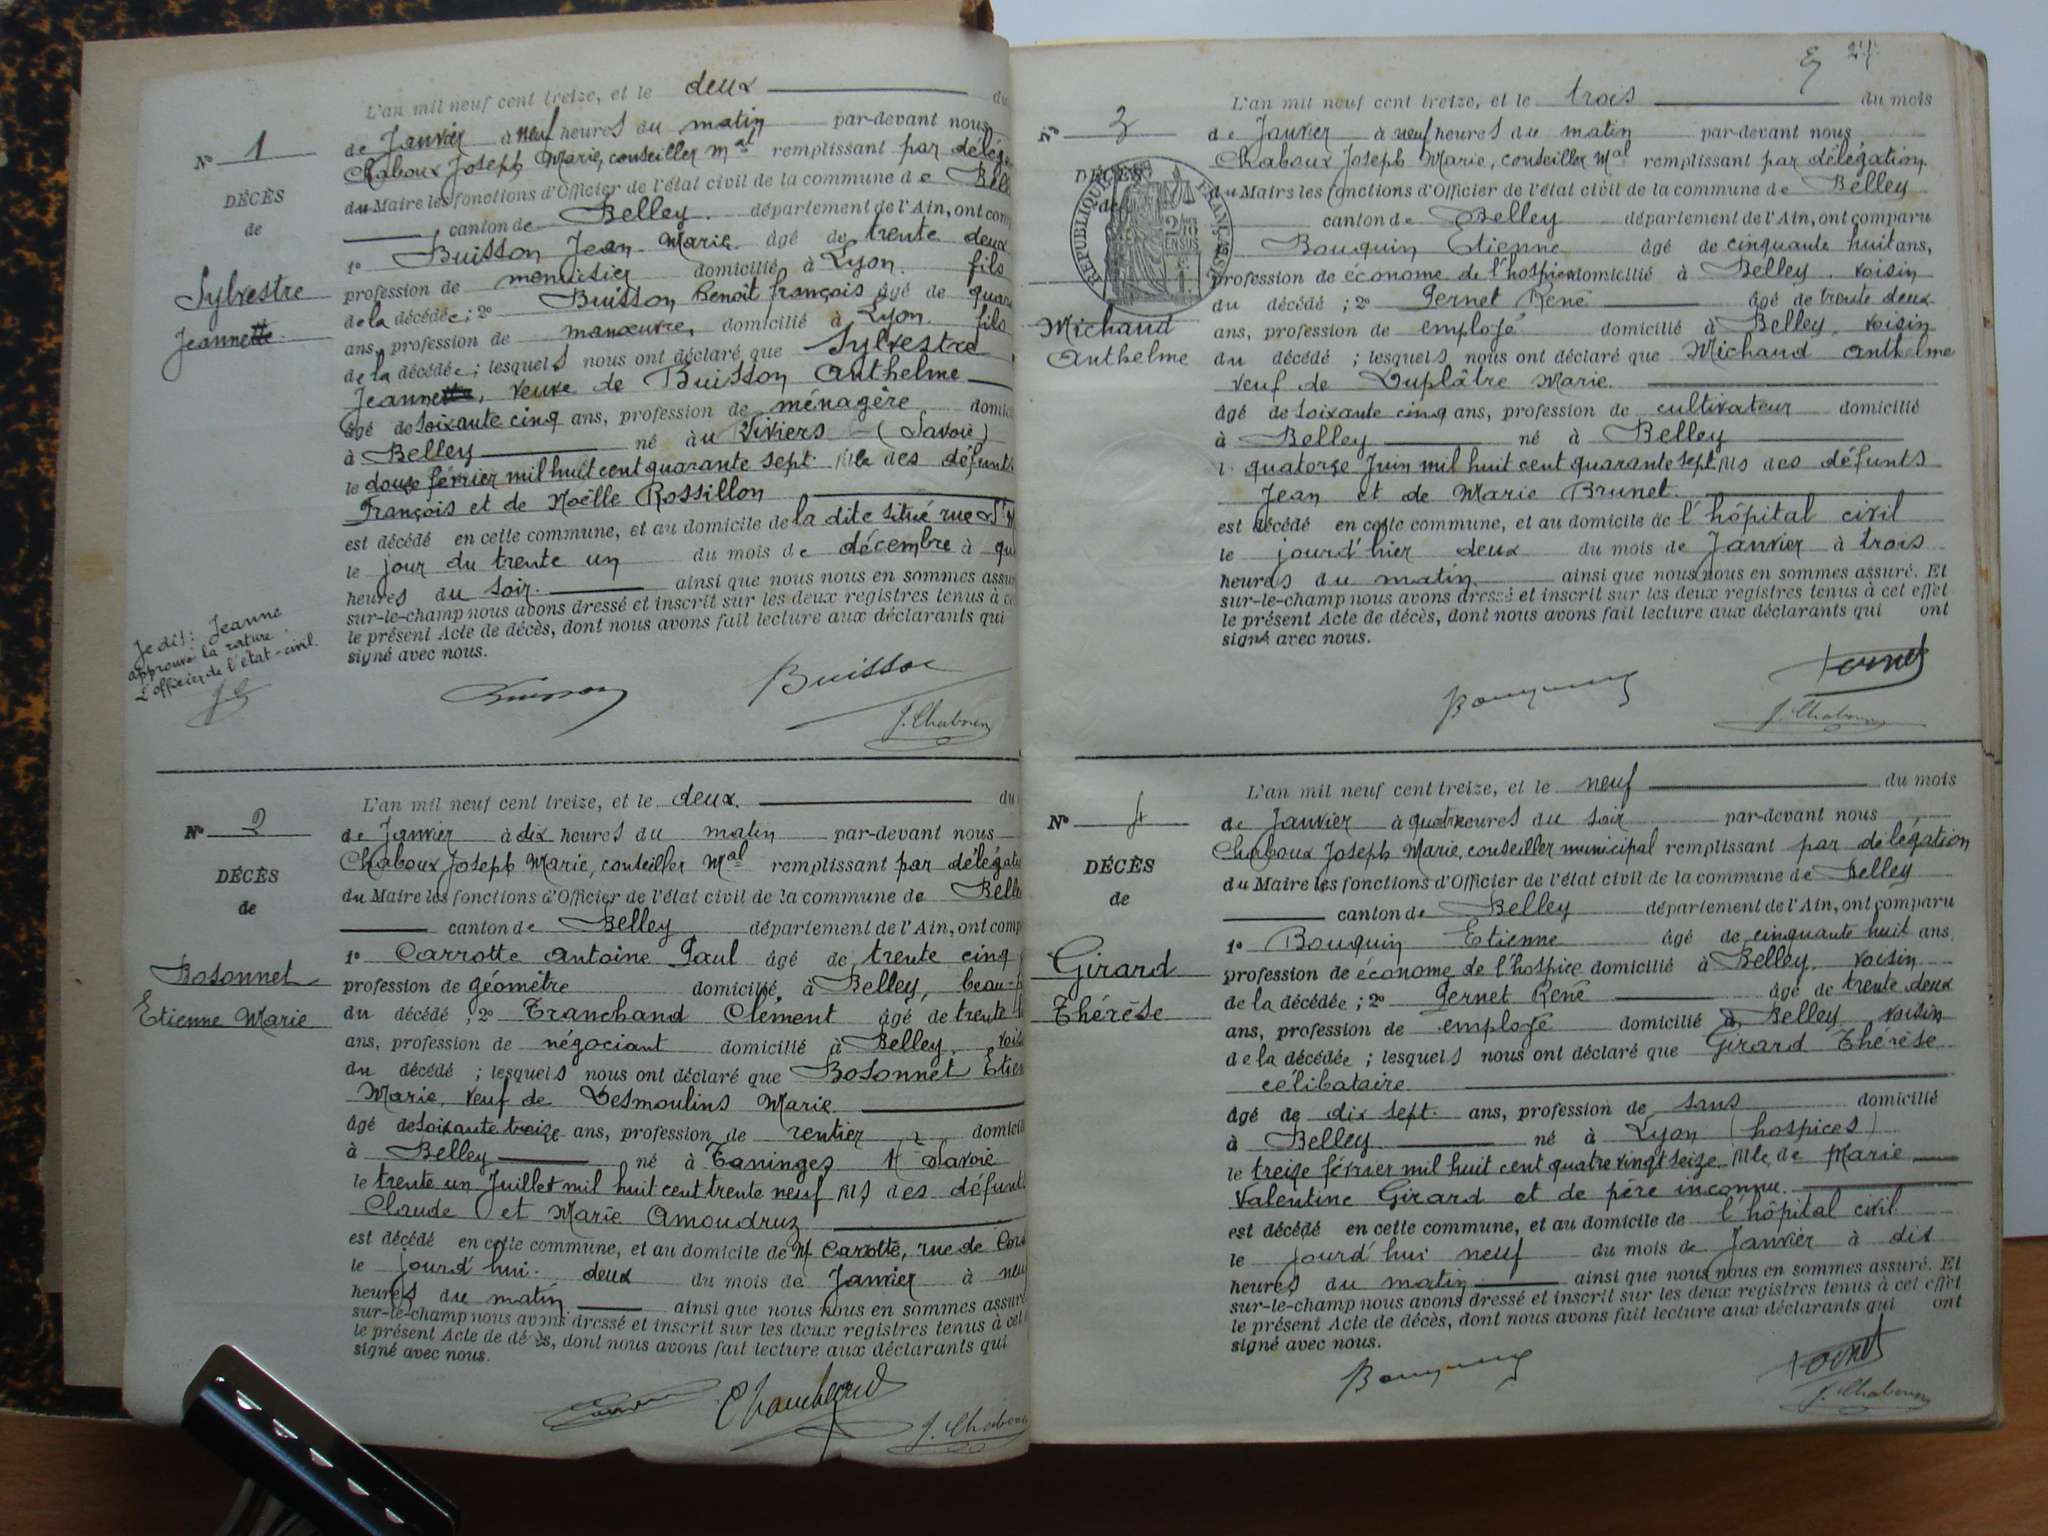 L'an mil neuf cent treize, et le deux du
Nº 1
de Janvier à neuf heures du matin par-devant nous
Chaboux Joseph Marie, conseiller mal remplissant par délég
DÉCÈS
du Maire les fonctions d'Officier de l'état civil de la commune de Bell
de
canton de Belley département de l'Ain, ont comp
1º Buisson Jean Marie âgé de trente deux
Sylvestre
profession de menuisier domicilié à Lyon. fils
de la décédée; 2º Buisson Benoît François âgé de quara
Jeannette
ans, profession de manœuvre, domicilié à Lyon. fils
de la décédée; lesquels nous ont déclaré que Sylvestre
Jeannette, veuve de Buisson Anthelme
âgé de soixante cinq ans, profession de ménagère domici
à Belley né àu Viviers (Savoie)
le douze février mil huit cent quarante sept fille des défunts
François et de Noëlle Rossillon
est décédé en cette commune, et au domicile de la dite situé rue St
le jour du trente un du mois de décembre à qu
heures du soir. ainsi que nous nous en sommes assur
sur-le-champ nous avons dressé et inscrit sur les deux registres tenus à ce
le présent Acte de décès, dont nous avons fait lecture aux déclarants qui
signé avec nous.
Je dis: Jeanne
approuvé la rature
L'officier de l'état-civil.
Buisson
Buisson
J. Chaboux
L'an mil neuf cent treize, et le deux. du
Nº 2
de Janvier à dix heures du matin par-devant nous
Chaboux Joseph Marie, conseiller Mal remplissant par délégati
DÉCÈS
du Maire les fonctions d'Officier de l'état civil de la commune de Belle
de
canton de Belley département de l'Ain, ont comp
1º Carrotte Antoine Paul âgé de trente cinq
Bosonnet
profession de géomètre domicilié à Belley, beau-f
Etienne Marie
du décédé; 2º Tranchand Clément âgé de trente
ans, profession de négociant domicilié à Belley, vois
du décédé; lesquels nous ont déclaré que Bosonnet Etien
Marie, veuf de Desmoulins Marie
âgé de soixante treize ans, profession de rentier domicili
à Belley né à Taninges Hte Savoie
le trente un Juillet mil huit cent trente neuf fils des défunts
Claude et Marie Amoudruz
est décédé en cette commune, et au domicile de M. Carrotte, rue de
le jourd'hui deux du mois de Janvier à neuf
heures du matin. ainsi que nous nous en sommes assuré
sur-le-champ nous avons dressé et inscrit sur les deux registres tenus à cet
le présent Acte de décès, dont nous avons fait lecture aux déclarants qui
signé avec nous.
J. Chaboux
27
L'an mil neuf cent treize, et le trois du mois
Nº 3
de Janvier à neuf heures du matin par-devant nous
Chaboux Joseph Marie, conseiller Mal remplissant par délégation
DÉCÈS
du Maire les fonctions d'Officier de l'état civil de la commune de Belley
de
RÉPUBLIQUE FRANÇAISE
canton de Belley département de l'Ain, ont comparu
Bouquin Etienne âgé de cinquante huit ans,
profession de économe de l'hospice domicilié à Belley. voisin
du décédé; 2º Pernet René âgé de trente deux
Michaud
ans, profession de employé domicilié à Belley, voisin
Anthelme
du décédé; lesquels nous ont déclaré que Michaud Anthelme
veuf de Duplâtre Marie.
âgé de soixante cinq ans, profession de cultivateur domicilié
à Belley né à Belley
le quatorze Juin mil huit cent quarante sept fils des défunts
Jean et de Marie Brunet.
est décédé en cette commune, et au domicile de l'hôpital civil
le jourd'hier deux du mois de Janvier à trois
heures du matin ainsi que nous nous en sommes assuré. Et
sur-le-champ nous avons dressé et inscrit sur les deux registres tenus à cet effet
le présent Acte de décès, dont nous avons fait lecture aux déclarants qui ont
signé avec nous.
Bouquin
Pernet
J. Chaboux
L'an mil neuf cent treize, et le neuf du mois
Nº 4
de Janvier à quatre heures du soir par-devant nous
Chaboux Joseph Marie, conseiller municipal remplissant par délégation
DÉCÈS
du Maire les fonctions d'Officier de l'état civil de la commune de Belley
de
canton de Belley département de l'Ain, ont comparu
1º Bouquin Etienne âgé de cinquante huit ans
Girard
profession de économe de l'hospice domicilié à Belley. voisin
Thérèse
de la décédée; 2º Pernet René âgé de trente deux
ans, profession de employé domicilié à Belley voisin
de la décédée; lesquels nous ont déclaré que Girard Thérèse
célibataire
âgé de dix sept. ans, profession de sans domicilié
à Belley né à Lyon (hospices)
le treize février mil huit cent quatre vingt seize fille de Marie
Valentine Girard et de père inconnu
est décédé en cette commune, et au domicile de l'hôpital civil
le jourd'hui neuf du mois de Janvier à dix
heures du matin ainsi que nous nous en sommes assuré. Et
sur-le-champ nous avons dressé et inscrit sur les deux registres tenus à cet effet
le présent Acte de décès, dont nous avons fait lecture aux déclarants qui ont
signé avec nous.
Bouquin
Pernet
J. Chaboux